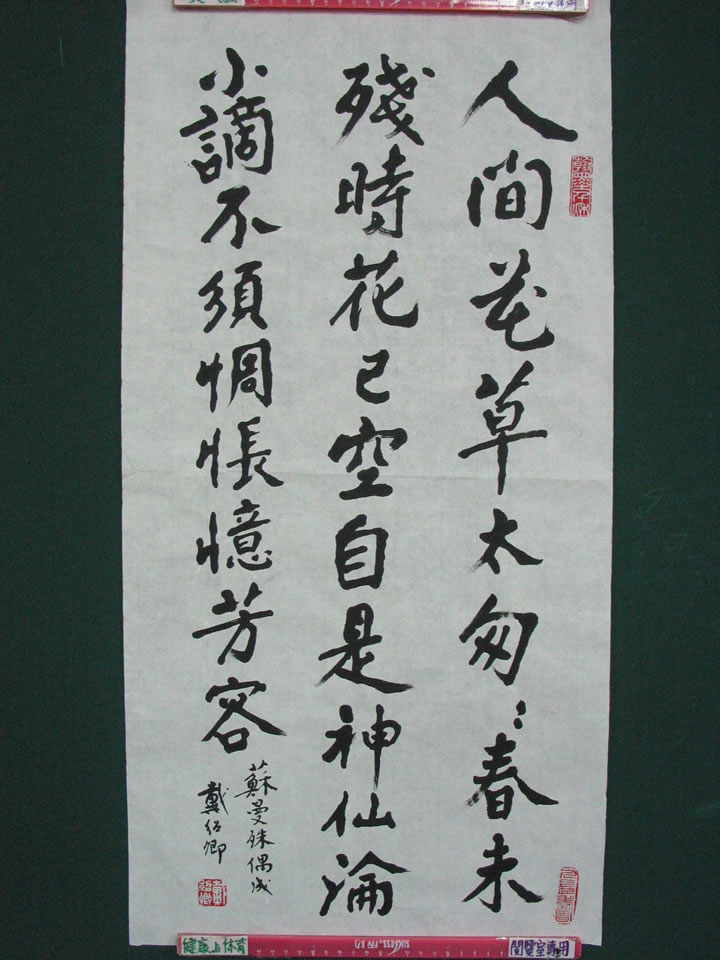 人間花草太匆〻春未
殘時花已空自是神仙淪
小謫不須惆悵憶芳容
蘇曼殊偶成
戴紹卿
健康与体育
SUCCESS
閱覽室專用